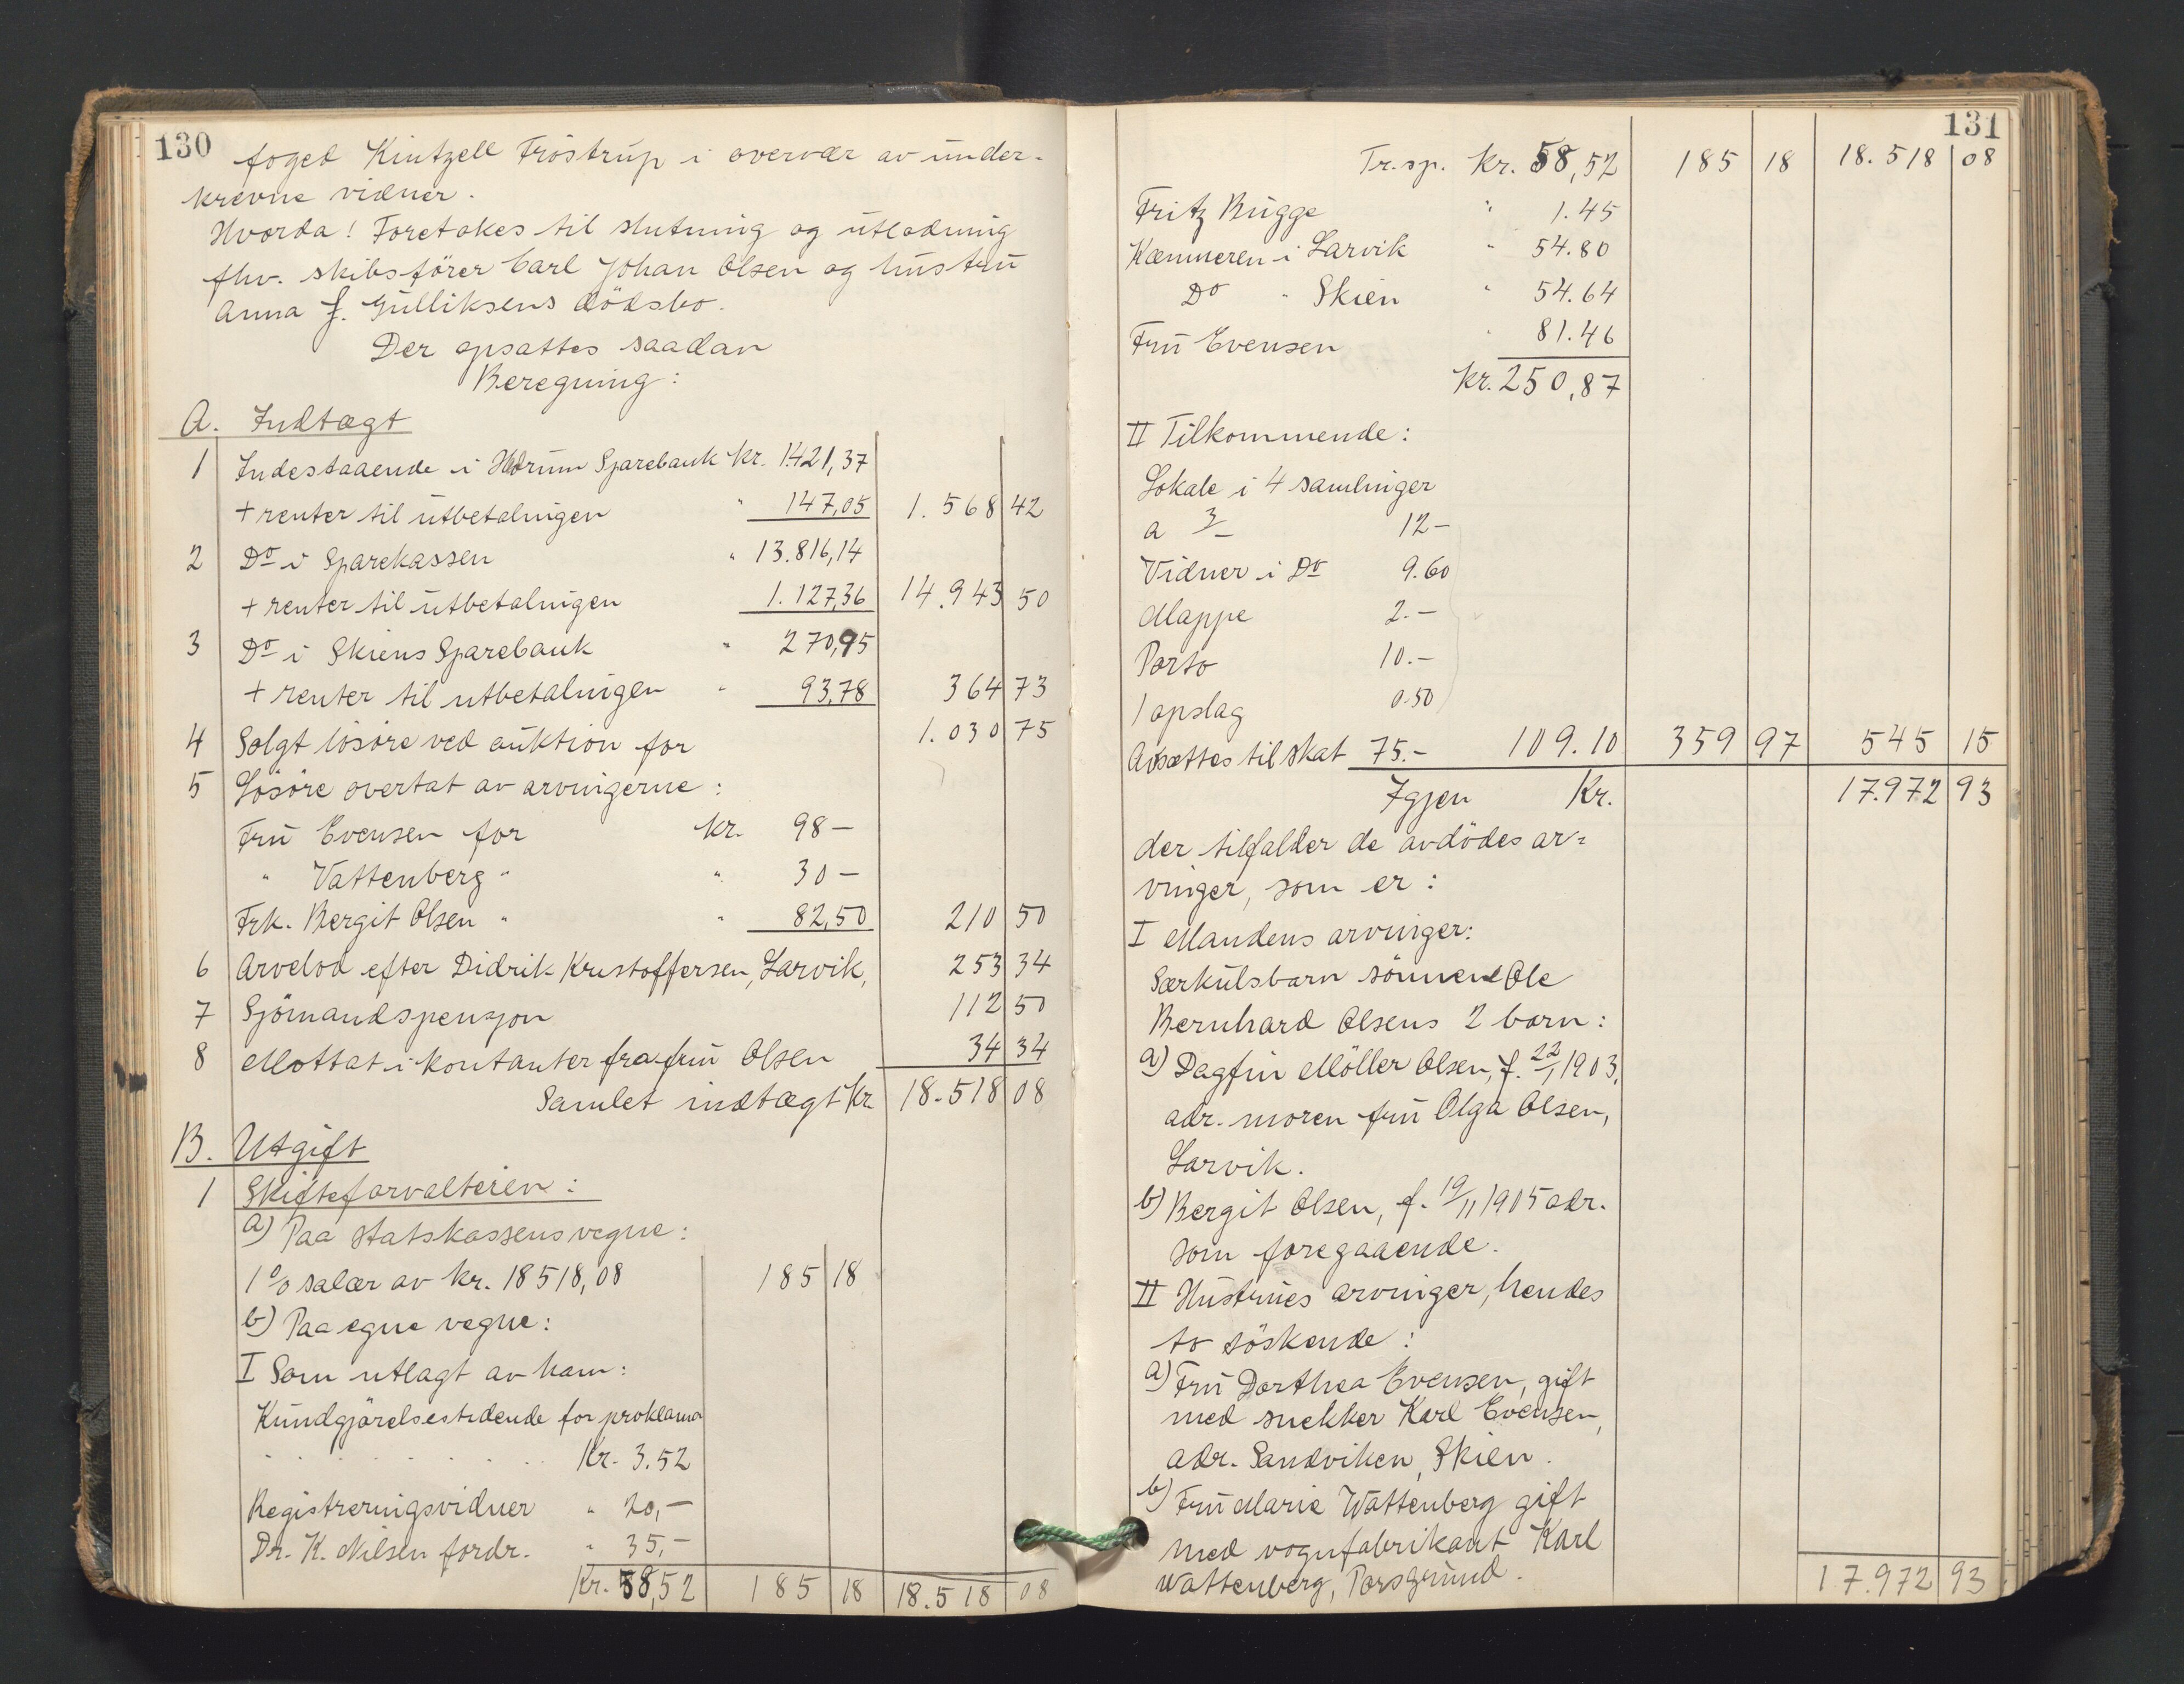 130
foged Kintzell Fröstrup i overvær av under-
krevne vidner.
Hvorda! Foretakes til slutning og utlodning
fhv. skibsförer Carl Johan Olsen og hustru
Anna f. Gulliksens dödsbo.
Der opsattes saadan
Beregning:
A. Indtægt
1 Indestaaende i Hedrum Sparebank Kr. 1421,37
+ renter til utbetalingen " 147,05 1.568 42
2 Do i Sparekassen " 13.816,14
+ renter til utbetalingen 1.127,36 14.943 50
3 Do i Skiens Sparebank " 270,95
+ renter til utbetalingen " 93,78 364 73
4 Solgt lösöre ved auktion for 1.030 75
5 Lösöre overtat av arvingerne:
Fru Evensen for Kr. 98 —
" Vattenberg " " 30 —
Frk. Bergit Olsen " " 82,50 210 50
6 Arvelod efter Didrik Kristoffersen, Larvik, 253 34
7 Sjömandspensjon 112 50
8 Mottat i kontanter fra fru Olsen 34 34
Samlet indtægt Kr. 18.518 08
B. Utgift
1 Skifteforvalteren:
a) Paa statskassens vegne:
1 % salær av kr. 18518,08 185 18
b) Paa egne vegne:
I Som utlagt av ham:
Kundgjörelsestidende for proklama
. . . . . . Kr. 3.52
Registreringsvidner " 20,—
Dr. K. Nilsen fordr. " 35,—
Kr. 58,52 185 18 18.518 08
131
Tr.sp. Kr. 58,52 185 18 18.518 08
Fritz Bugge " 1.45
Kæmneren i Larvik " 54.80
Do " Skien " 54.64
Fru Evensen " 81.46
Kr. 250,87
II Tilkommende:
Lokale i 4 samlinger
a 3/— 12 —
Vidner i Do 9.60
Mappe 2.—
Porto 10.—
1 opslag 0.50
Avsættes til skat 75.— 109.10 359 97 545 15
Igjen Kr. 17.972 93
der tilfalder de avdödes ar=
vinger, som er:
I Mandens arvinger:
Særkulsbarn sönnen Ole
Bernhard Olsens 2 barn:
a) Dagfin Möller Olsen, f. 22/1 1903,
adr. moren fru Olga Olsen,
Larvik.
b) Bergit Olsen, f. 19/11 1905 adr.
som foregaaende.
II Hustrues arvinger, hendes
to söskende:
a) Fru Dorthea Evensen, gift
med snekker Karl Evensen,
adr. Sandviken, Skien.
b) Fru Marie Wattenberg gift
med vognfabrikant Karl
Wattenberg, Porsgrund. 17.972 93